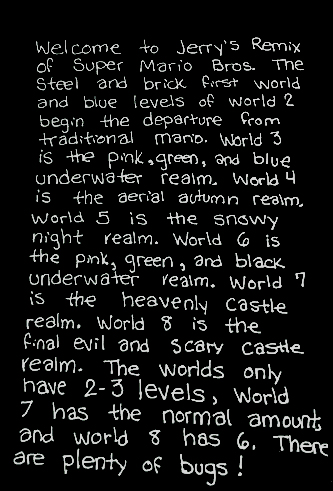 Welcome to Jerry's Remix
of Super Mario Bros. The
Steel and brick first world
and blue levels of world 2
begin the departure from
traditional mario. World 3
is the pink, green, and blue
underwater realm. World 4
is the aerial autumn realm.
World 5 is the snowy
night realm. World 6 is
the pink, green, and black
underwater realm. World 7
is the heavenly castle
realm. World 8 is the
final evil and scary castle
realm. The worlds only
have 2-3 levels, World
7 has the normal amount
and world 8 has 6. There
are plenty of bugs!